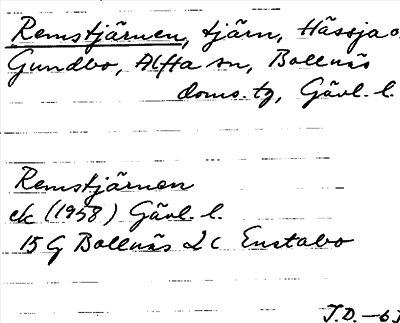 Remstjärnen, tjärn, Hässja o.
Gundbo, Alfta sn, Bollnäs
doms.tg, Gävl. l.
Remstjärnen
ek (1958) Gävl. l.
15 G Bollnäs 2 c Enstabo
J.D. –63